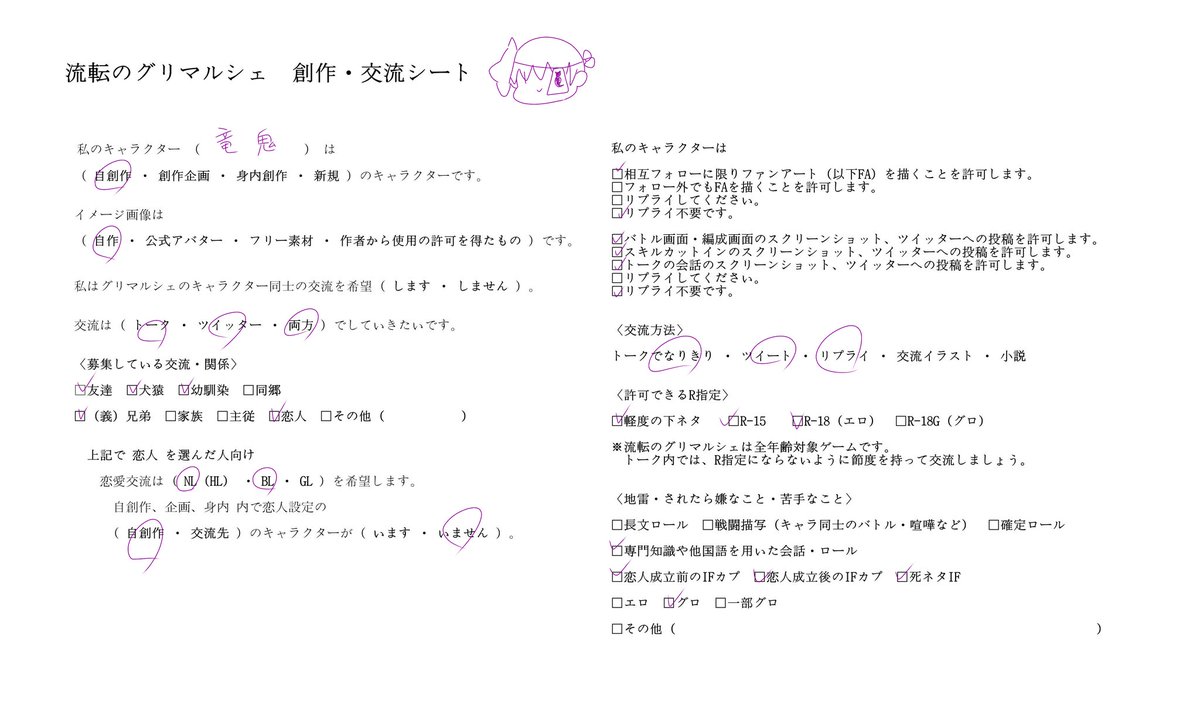 流転のグリマルシェ 創作・交流シート
竜
私のキャラクター ( 竜 鬼 ) は
( 自創作 ・ 創作企画 ・ 身内創作 ・ 新規 ) のキャラクターです。
イメージ画像は
( 自作 ・ 公式アバター ・ フリー素材 ・ 作者から使用の許可を得たもの ) です。
私はグリマルシェのキャラクター同士の交流を希望 ( します ・ しません ) 。
交流は ( トーク ・ ツイッター ・ 両方 ) でしていきたいです。
〈募集している交流・関係〉
☑友達 ☑犬猿 ☑幼馴染 □同郷
☑(義)兄弟 □家族 □主従 ☑恋人 □その他 ( )
上記で 恋人 を選んだ人向け
恋愛交流は ( NL (HL) ・ BL ・ GL ) を希望します。
自創作、企画、身内 内で恋人設定の
( 自創作 ・ 交流先 ) のキャラクターが ( います ・ いません ) 。
私のキャラクターは
☑相互フォローに限りファンアート (以下FA) を描くことを許可します。
□フォロー外でもFAを描くことを許可します。
□リプライしてください。
☑リプライ不要です。
☑バトル画面・編成画面のスクリーンショット、ツイッターへの投稿を許可します。
☑スキルカットインのスクリーンショット、ツイッターへの投稿を許可します。
☑トークの会話のスクリーンショット、ツイッターへの投稿を許可します。
□リプライしてください。
☑リプライ不要です。
〈交流方法〉
トークでなりきり ・ ツイート ・ リプライ ・ 交流イラスト ・ 小説
〈許可できるR指定〉
☑軽度の下ネタ ☑R-15 ☑R-18 (エロ) □R-18G (グロ)
※流転のグリマルシェは全年齢対象ゲームです。
トーク内では、R指定にならないように節度を持って交流しましょう。
〈地雷・されたら嫌なこと・苦手なこと〉
□長文ロール □戦闘描写 (キャラ同士のバトル・喧嘩など) □確定ロール
☑専門知識や他国語を用いた会話・ロール
☑恋人成立前のIFカプ ☑恋人成立後のIFカプ ☑死ネタIF
□エロ ☑グロ □一部グロ
□その他 ( )